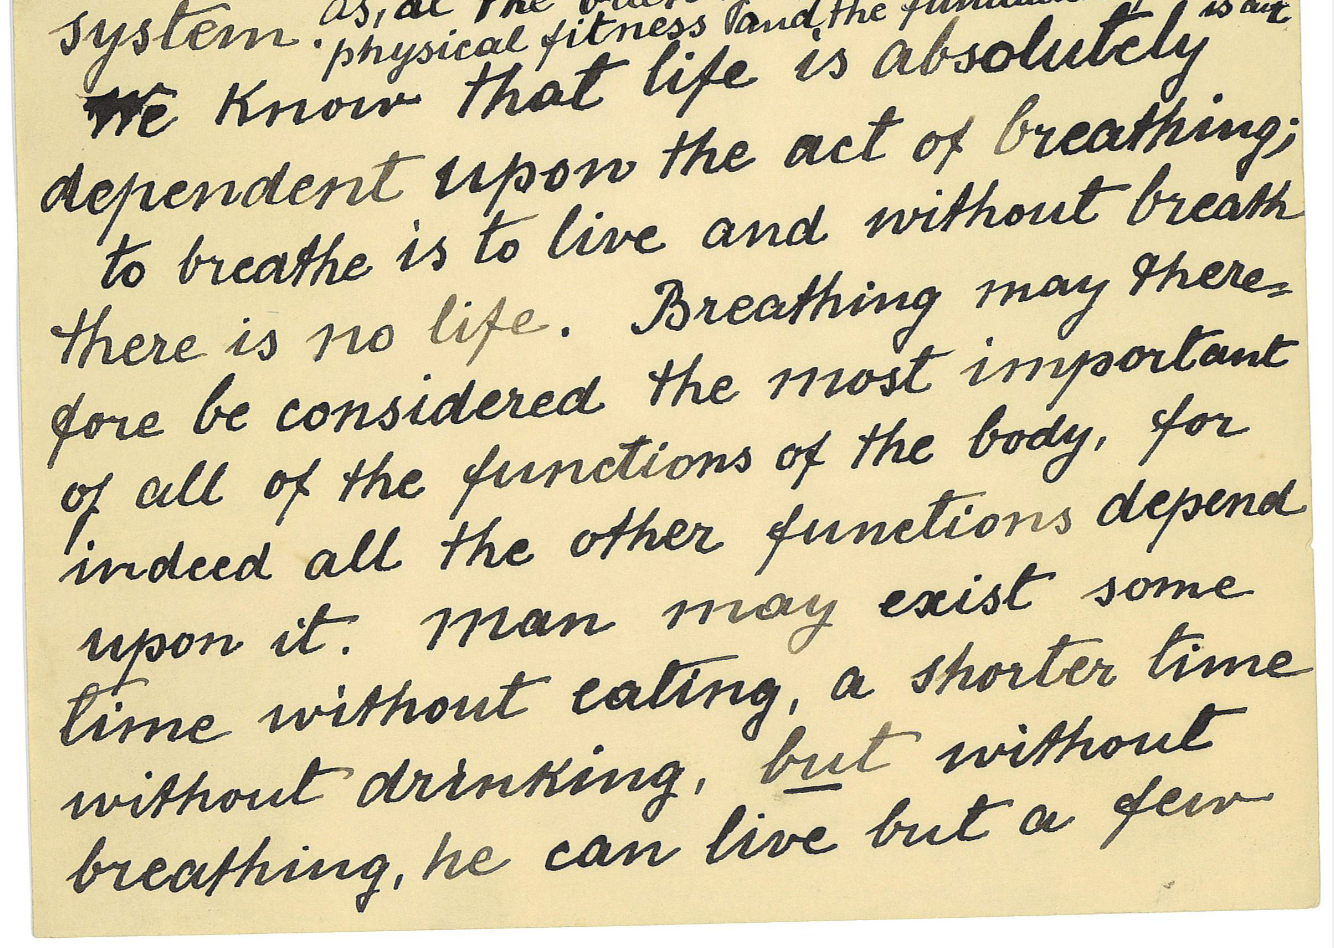 system. as, at the
physical fitness and the
We know that life is absolutely
dependent upon the act of breathing;
to breathe is to live and without breath
there is no life. Breathing may there=
fore be considered the most important
of all of the functions of the body, for
indeed all the other functions depend
upon it. Man may exist some
time without eating, a shorter time
without drinking, but without
breathing, he can live but a few